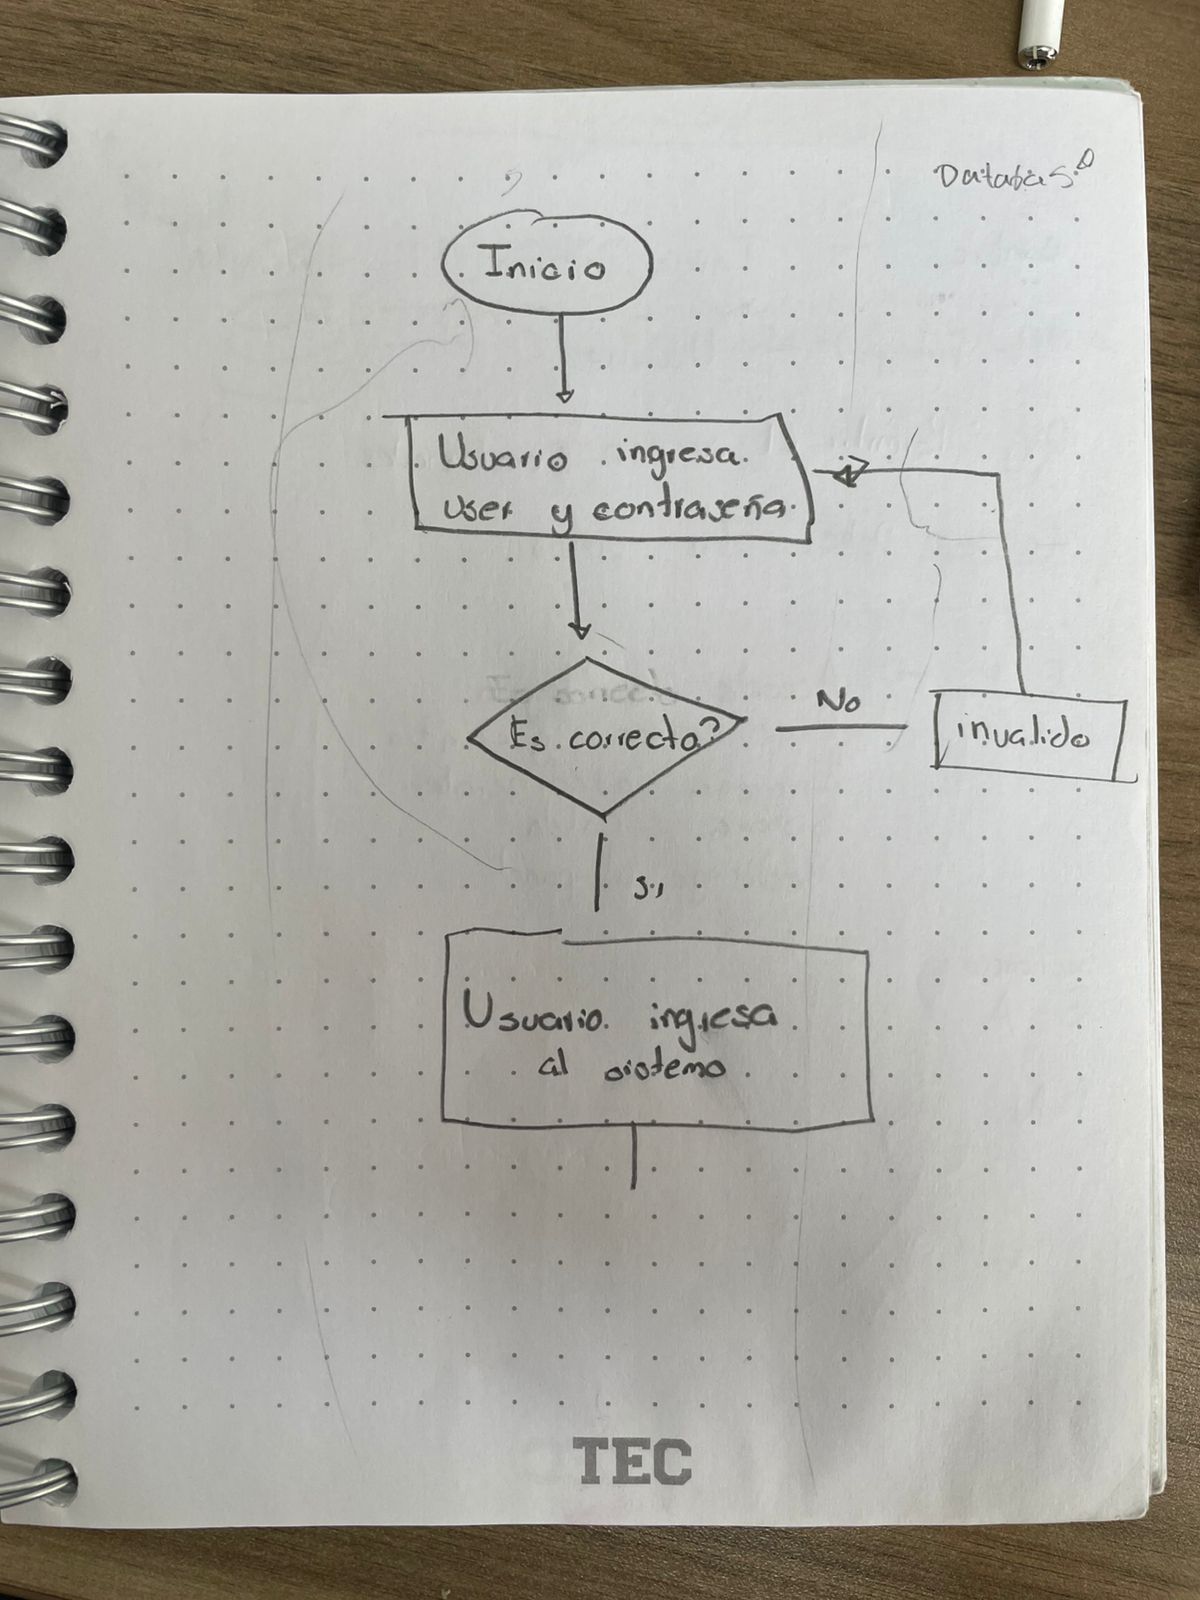 Database
Inicio
Usuario ingresa
user y contraseña
Es correcto?
No
invalido
Si
Usuario ingresa
al sistema
TEC